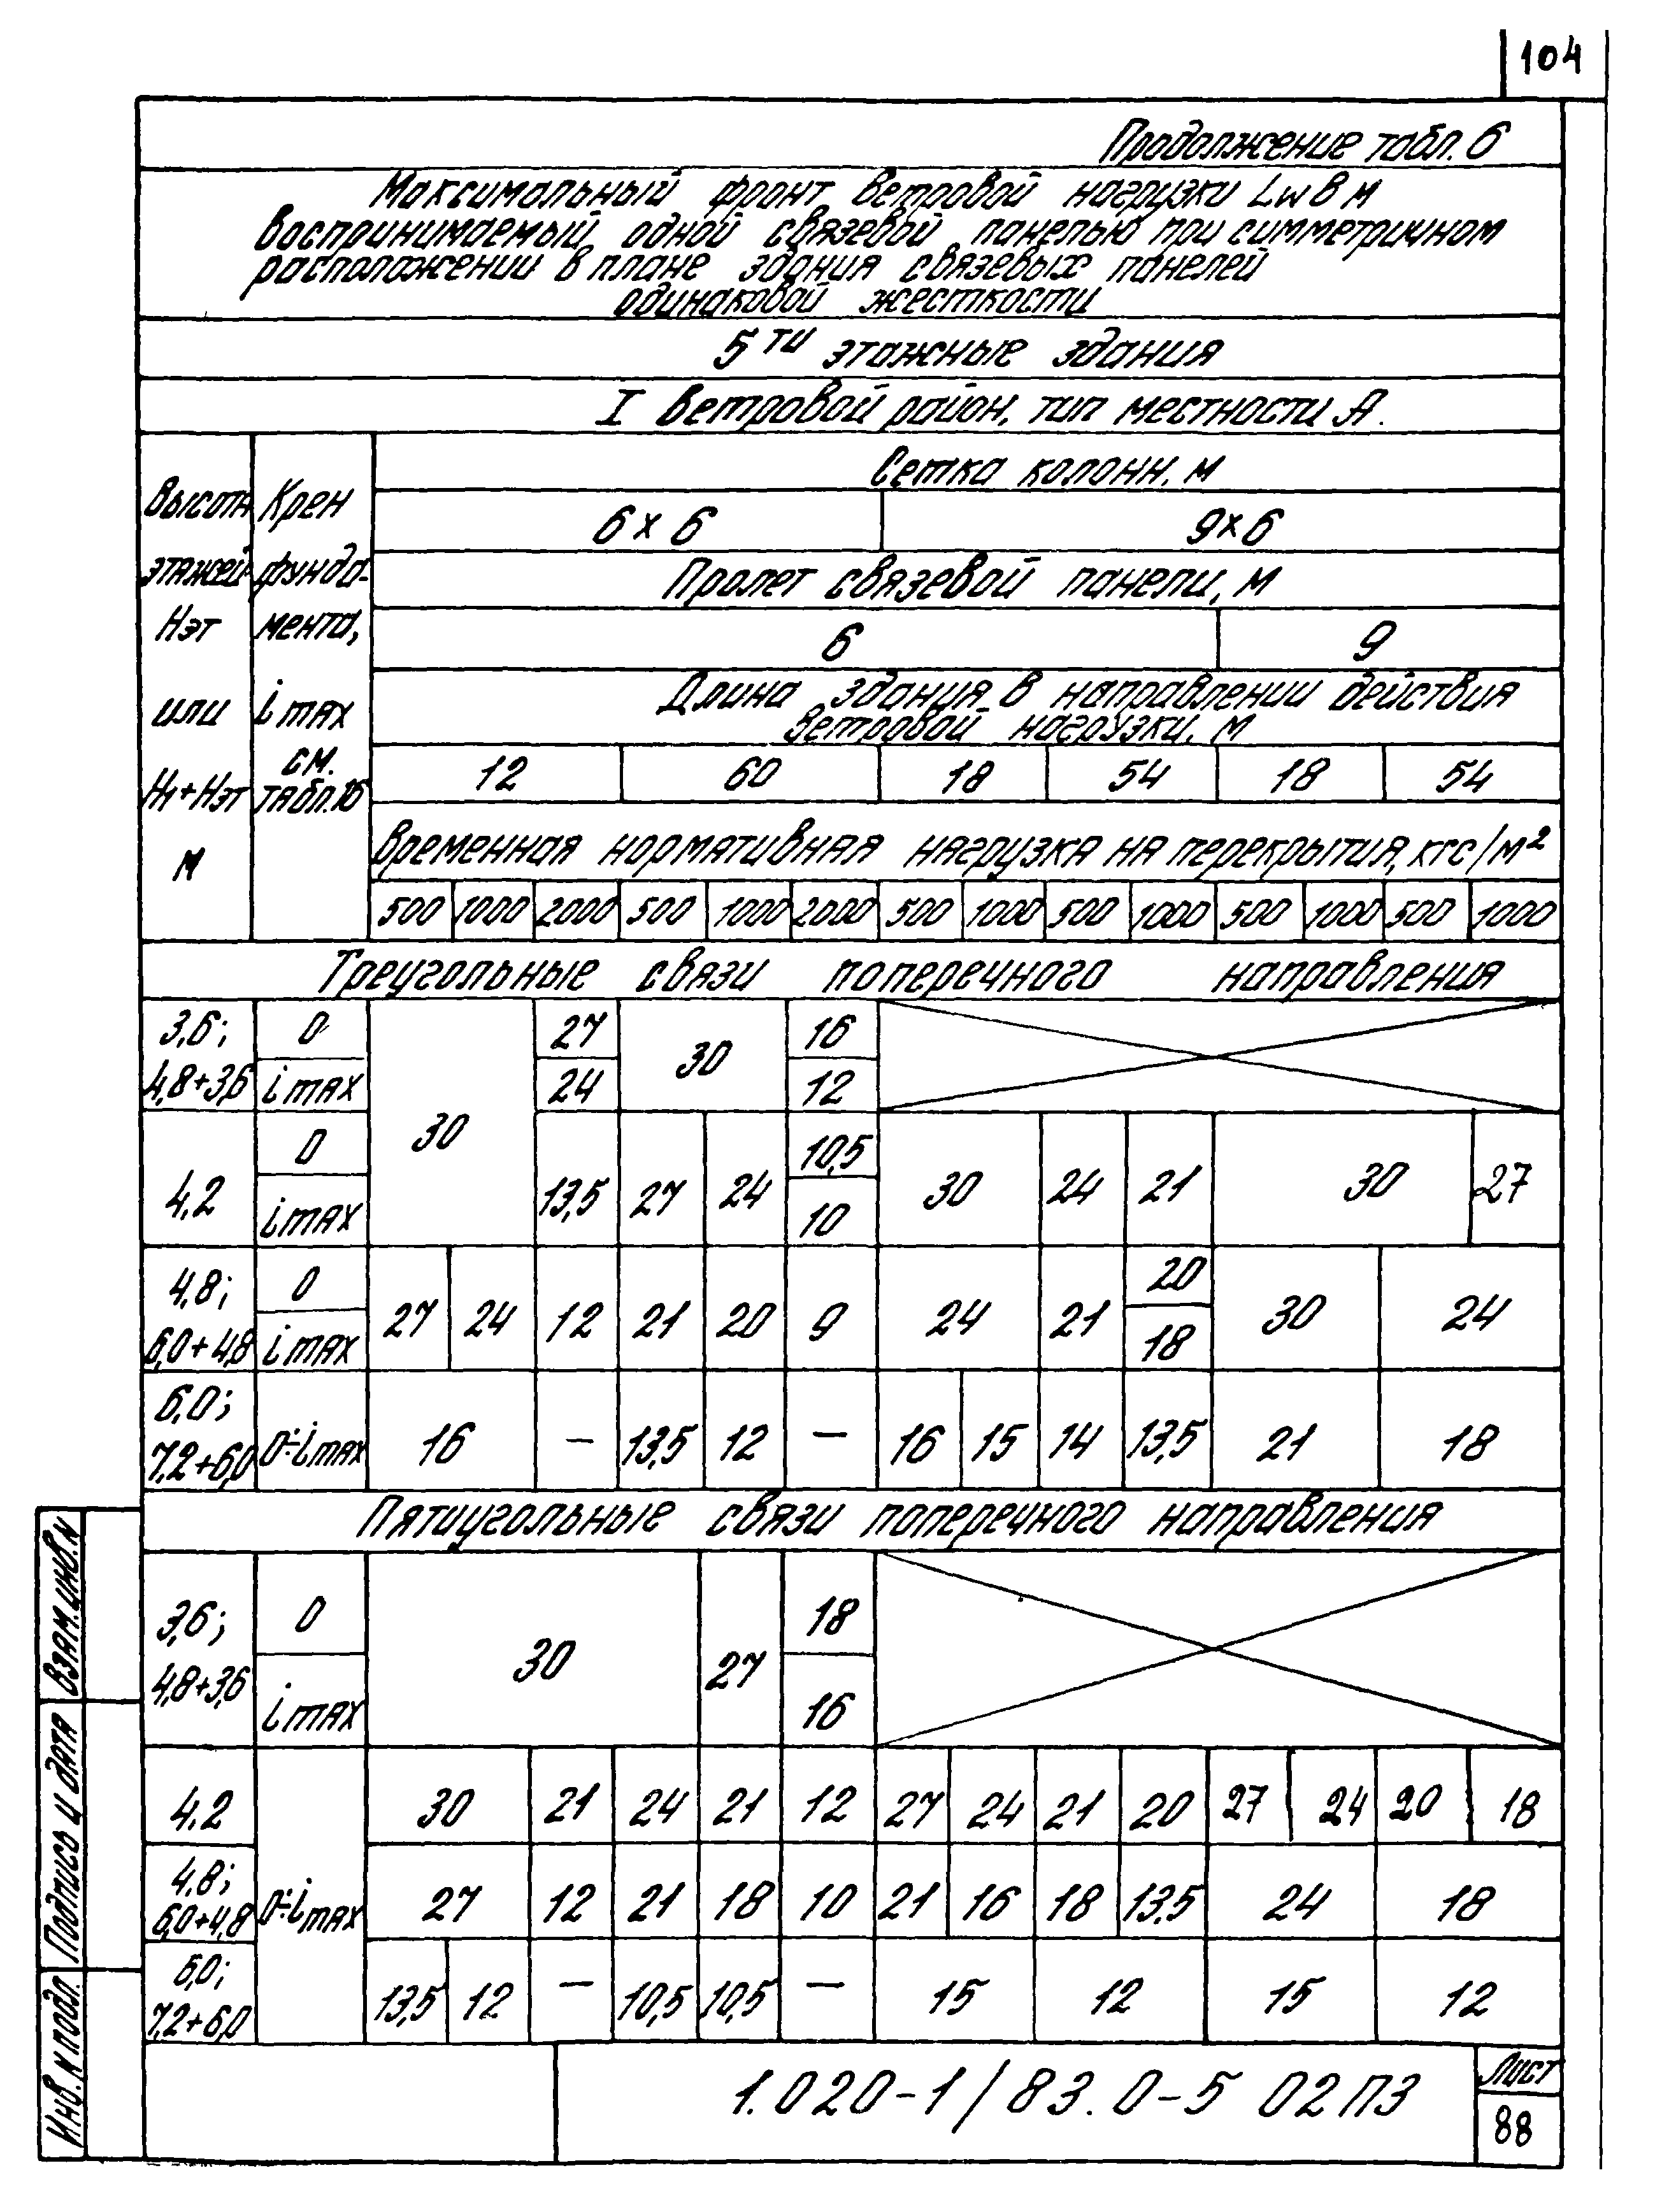 104
Продолжение табл. 6
Максимальный фронт ветровой нагрузки Lw в м
воспринимаемый одной связевой панелью при симметричном
расположении в плане здания связевых панелей
одинаковой жесткости
5ти этажные здания
I ветровой район, тип местности А.
Высота этажей Нэт или Н1+Нэт м
Крен фунда- мента, i max см. табл. 16
Сетка колонн, м
6 х 6 9х6
Пролет связевой панели, м
6 9
Длина здания в направлении действия
ветровой нагрузки, м
12 60 18 54 18 54
Временная нормативная нагрузка на перекрытия, кгс/м²
500 1000 2000 500 1000 2000 500 1000 500 1000 500 1000 500 1000
Треугольные связи поперечного направления
3,6; 0 27 30 16
4,8+3,6 i max 24 12
30
4,2 0 10,5
13,5 27 24 30 24 21 30 27
i max 10
4,8; 0 20
27 24 12 21 20 9 24 21 30 24
6,0+4,8 i max 18
6,0;
7,2+6,0 0÷i max 16 — 13,5 12 — 16 15 14 13,5 21 18
Пятиугольные связи поперечного направления
3,6; 0 18
30 27
4,8+3,6 i max 16
4.2 30 21 24 21 12 27 24 21 20 27 24 20 18
4.8;
6,0+4,8 0÷i max 27 12 21 18 10 21 16 18 13,5 24 18
6,0;
7,2+6,0 13,5 12 — 10,5 10,5 — 15 12 15 12
Взам. инв. N
Подпись и дата
Инв. N подл.
1.020-1/83.0-5 02ПЗ
Лист
88